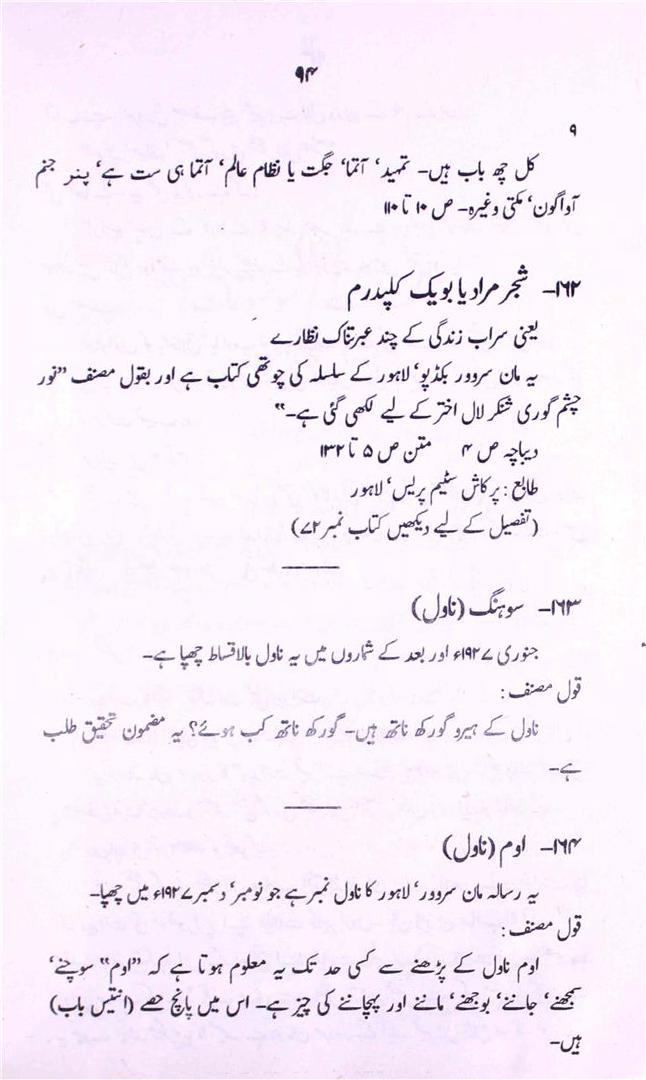 ۹۴
۹
کل چھ باب ہیں۔ تمہید‘ آتما‘ جگت یا نظام عالم‘ آتما ہی ست ہے‘ پنر جنم
آواگون‘ مکتی وغیرہ۔ ص ۱۰ تا ۱۱۰
۱۶۲۔ شجر مراد یا بویک کلپدرم
یعنی سراب زندگی کے چند عبرتناک نظارے
یہ مان سروور بکڈپو‘ لاہور کے سلسلہ کی چوتھی کتاب ہے اور بقول مصنف ”نور
چشم گوری شنکر لال اختر کے لیے لکھی گئی ہے۔“
دیباچہ ص ۴ متن ص ۵ تا ۱۳۲
طابع : پرکاش سٹیم پریس‘ لاہور
(تفصیل کے لیے دیکھیں کتاب نمبر ۷۲)
۱۶۳۔ سوہنگ (ناول)
جنوری ۱۹۲۷ء اور بعد کے شماروں میں یہ ناول بالاقساط چھپا ہے۔
قول مصنف :
ناول کے ہیرو گورکھ ناتھ ہیں۔ گورکھ ناتھ کب ہوئے؟ یہ مضمون تحقیق طلب
ہے۔
۱۶۴۔ اوم (ناول)
یہ رسالہ مان سروور‘ لاہور کا ناول نمبر ہے جو نومبر‘ دسمبر ۱۹۲۷ء میں چھپا۔
قول مصنف :
اوم ناول کے پڑھنے سے کسی حد تک یہ معلوم ہوتا ہے کہ ”اوم“ سوچنے‘
سمجھنے‘ جاننے‘ بوجھنے‘ ماننے اور پہچاننے کی چیز ہے۔ اس میں پانچ حصے (انتیس باب)
ہیں۔